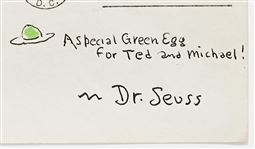 D.C.
A special Green Egg
for Ted and Michael!
~ Dr. Seuss